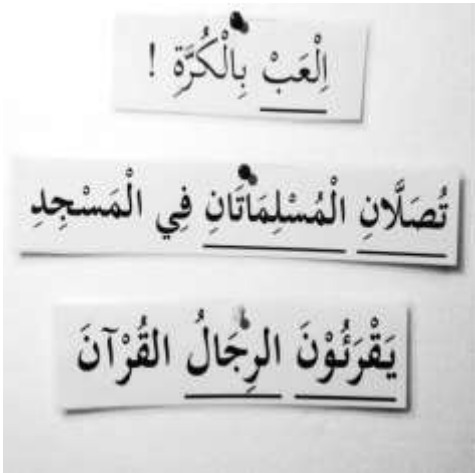 اِلْعَبْ بِالْكُرَّةِ !
تُصَلَّانِ الْمُسْلِمَاتَانِ فِي الْمَسْجِدِ
يَقْرَئُوْنَ الرِجَالُ القُرْآنَ